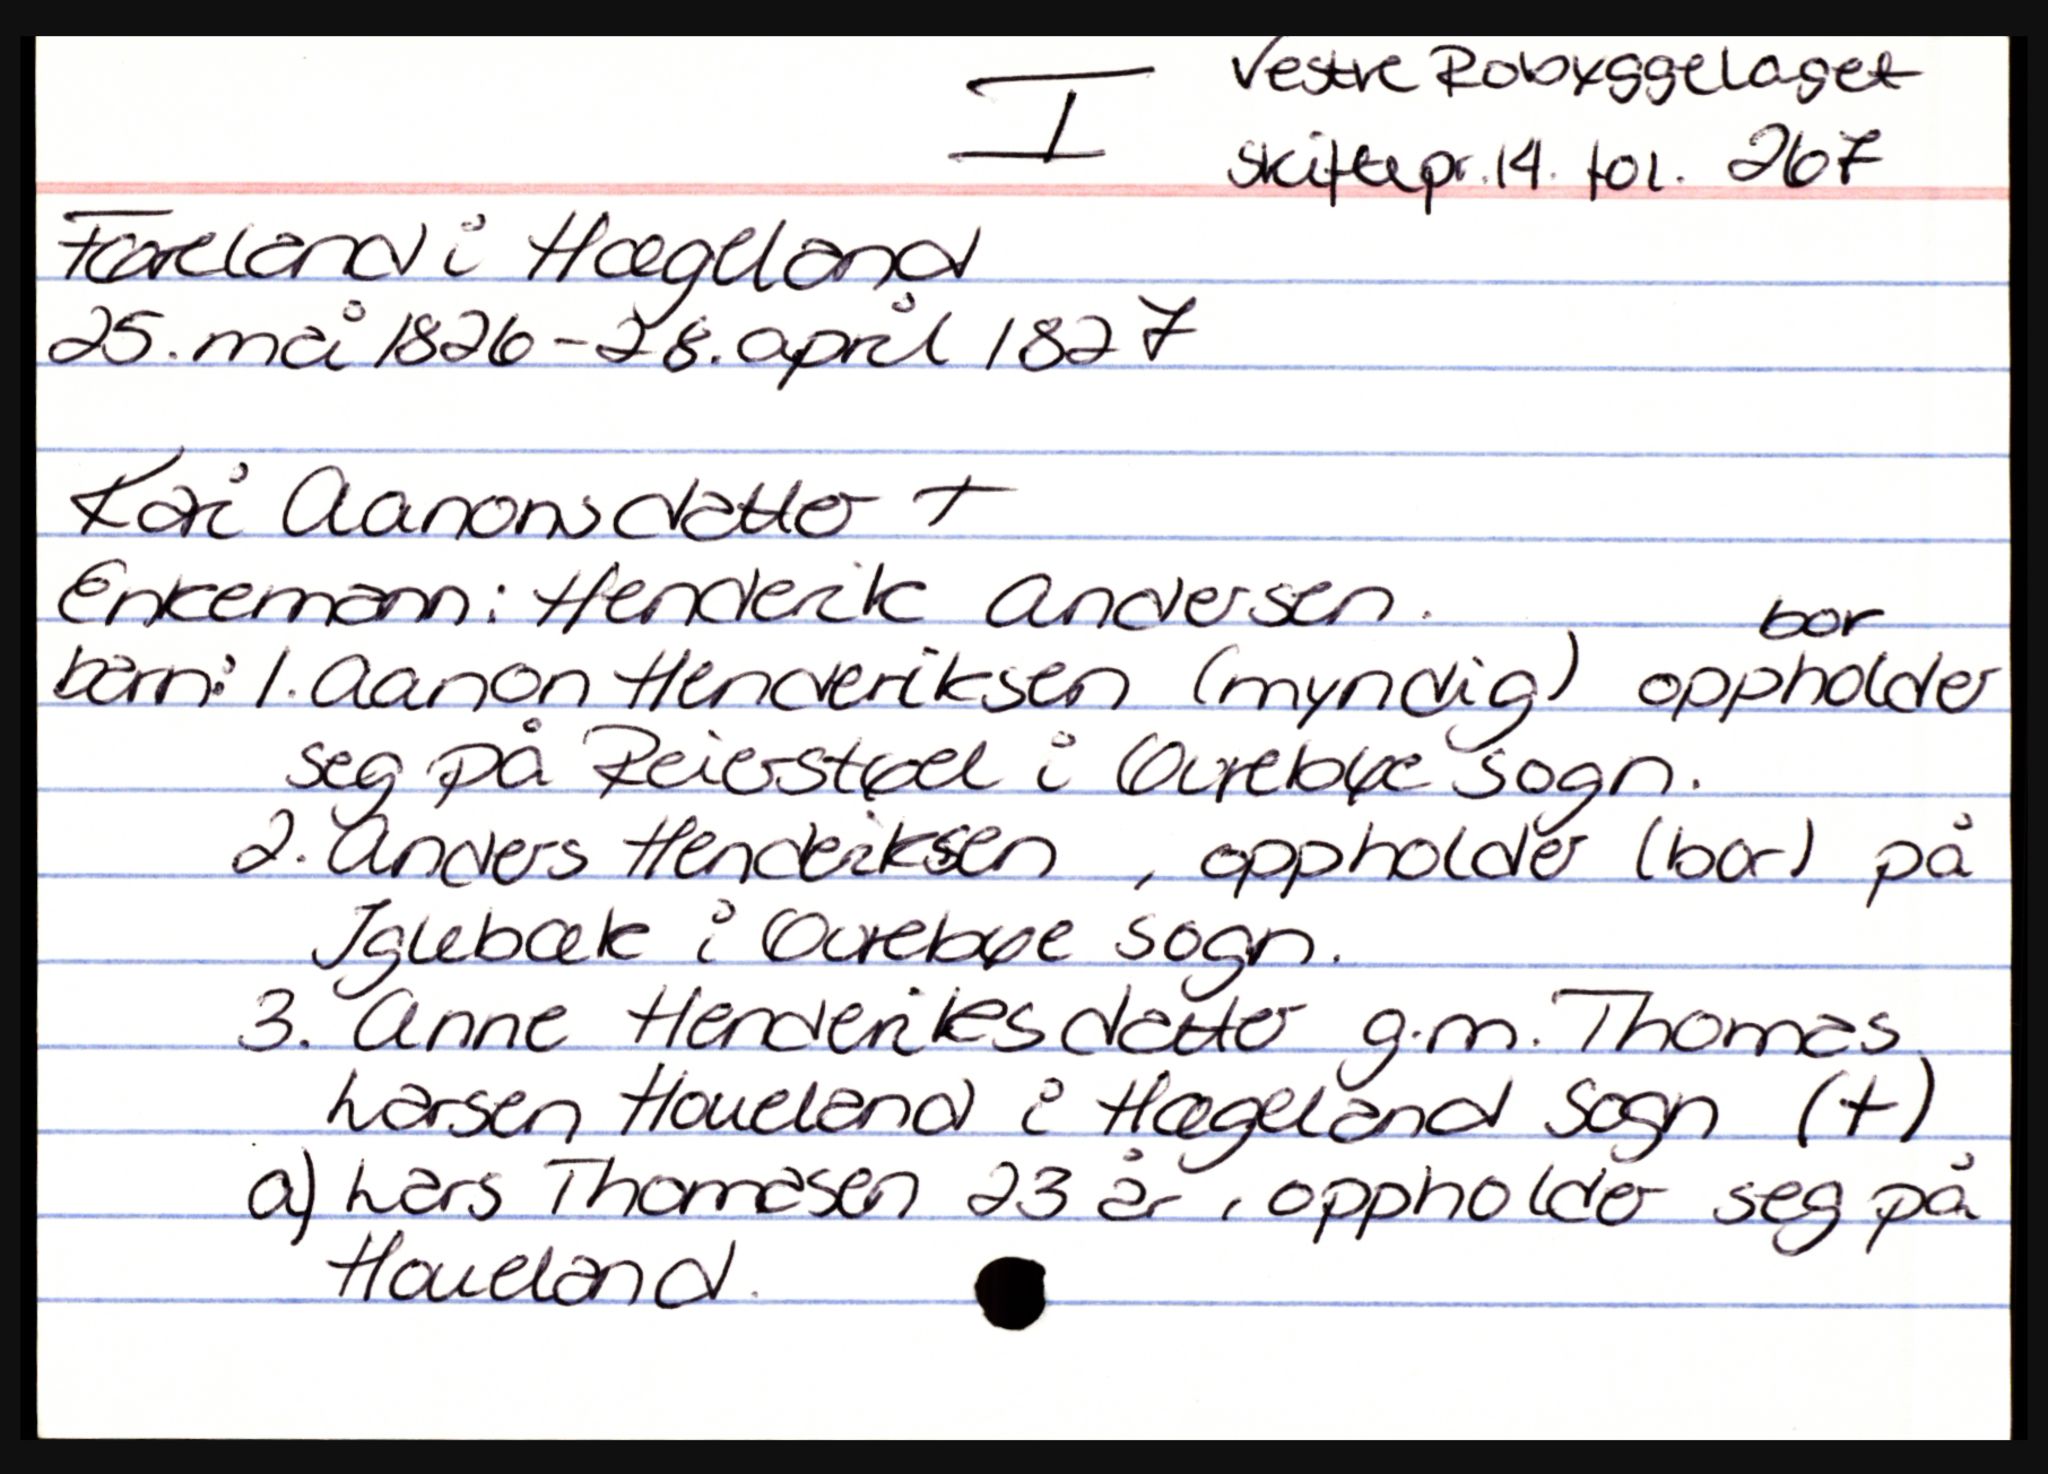 I
Vestre Robyggelaget
skiftepr. 14. fol. 267
Fareland i Hægeland
25. mai 1826 - 28. april 1827
Kari Aanonsdatter +
Enkemann: Henderik Andersen.
bor
barn: 1. Aanon Henderiksen (myndig) oppholder
seg på Reierstøel i Øvrebøe sogn.
2. Anders Henderiksen , oppholder (bor) på
Iglebæk i Øvrebøe sogn.
3. Anne Henderiksdatter g.m. Thomas
Larsen Houeland i Hægeland Sogn (+)
a) Lars Thomasen 23 år, oppholder seg på
Houeland.